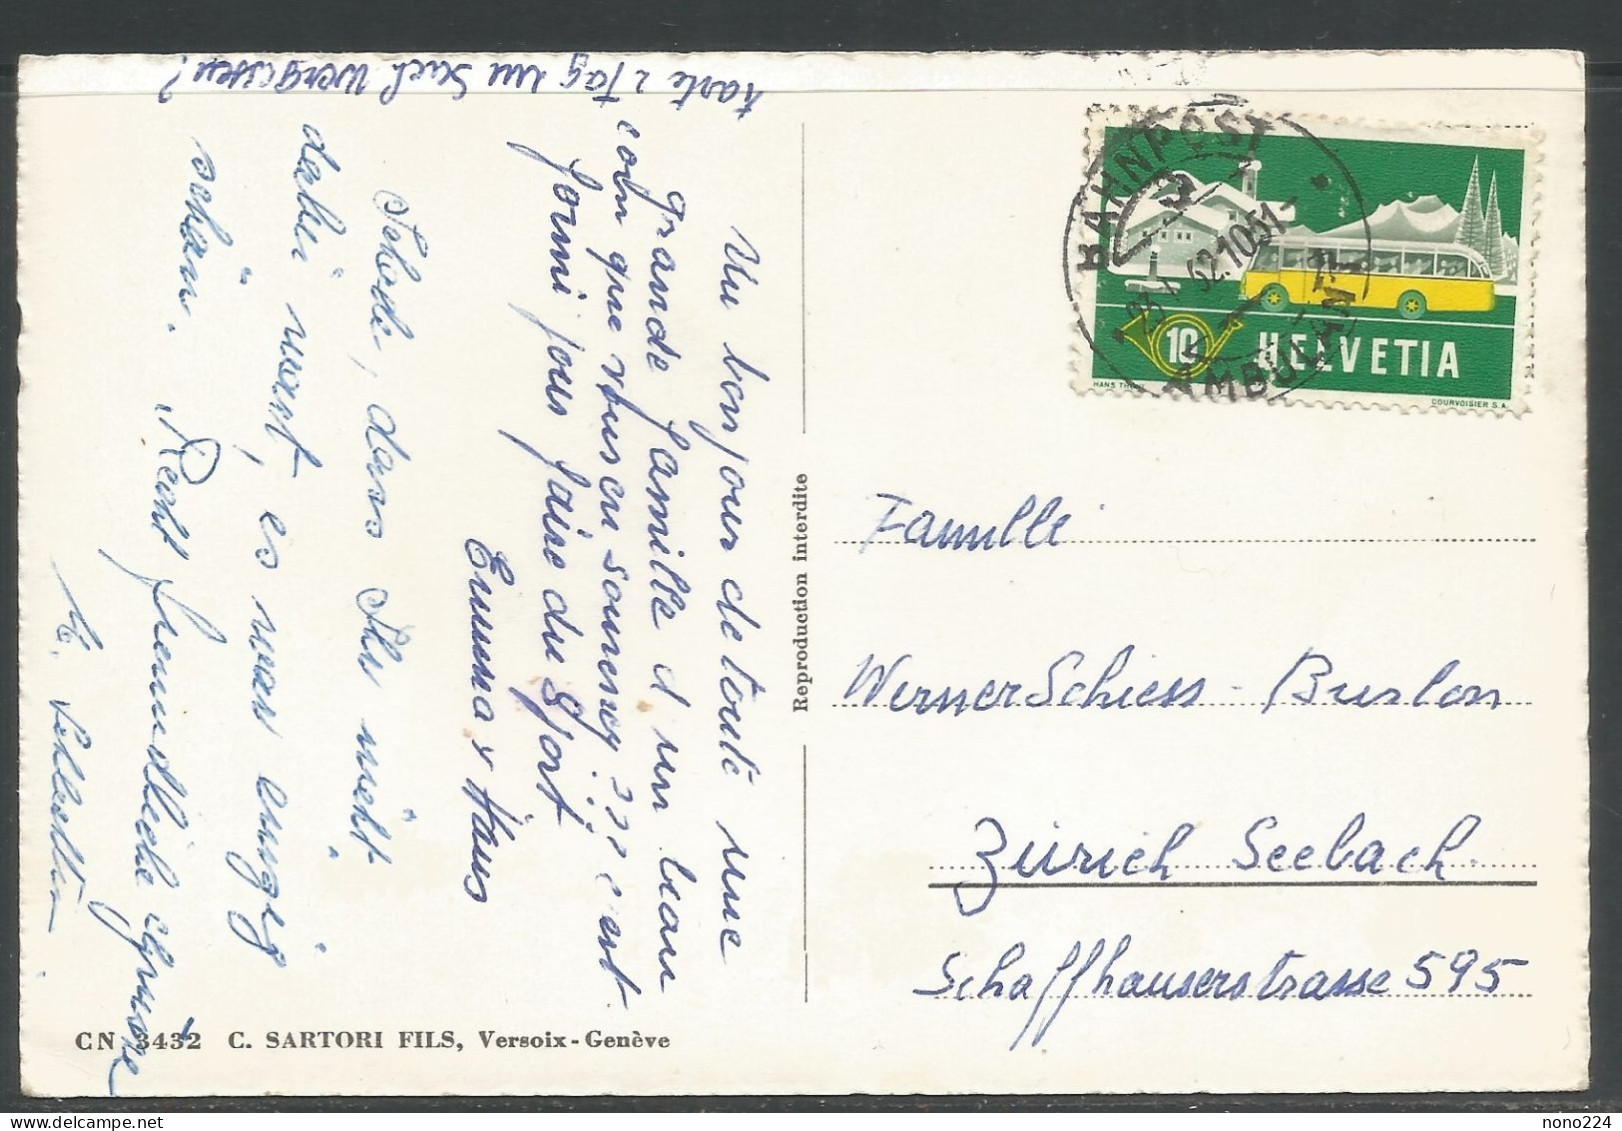 Karte 2 Tag im Sack vergessen?
Un bonjour de toute une
grande famille d'un beau
coin que vous en souvenez??? c'est
formi jous faire du sport
Emma & Haus
Schade, dass Ihr nicht
dabei wart, es war einzig
schön. Recht freundliche Grüsse
BAHNPOST
AMBULANT
10
HELVETIA
COURVOISIER S.A.
Reproduction interdite
Famille
Werner Schiess - Burlon
Zürich Seebach
Schaffhauserstrasse 595
CN 3432 C. SARTORI FILS, Versoix-Genève
nono224